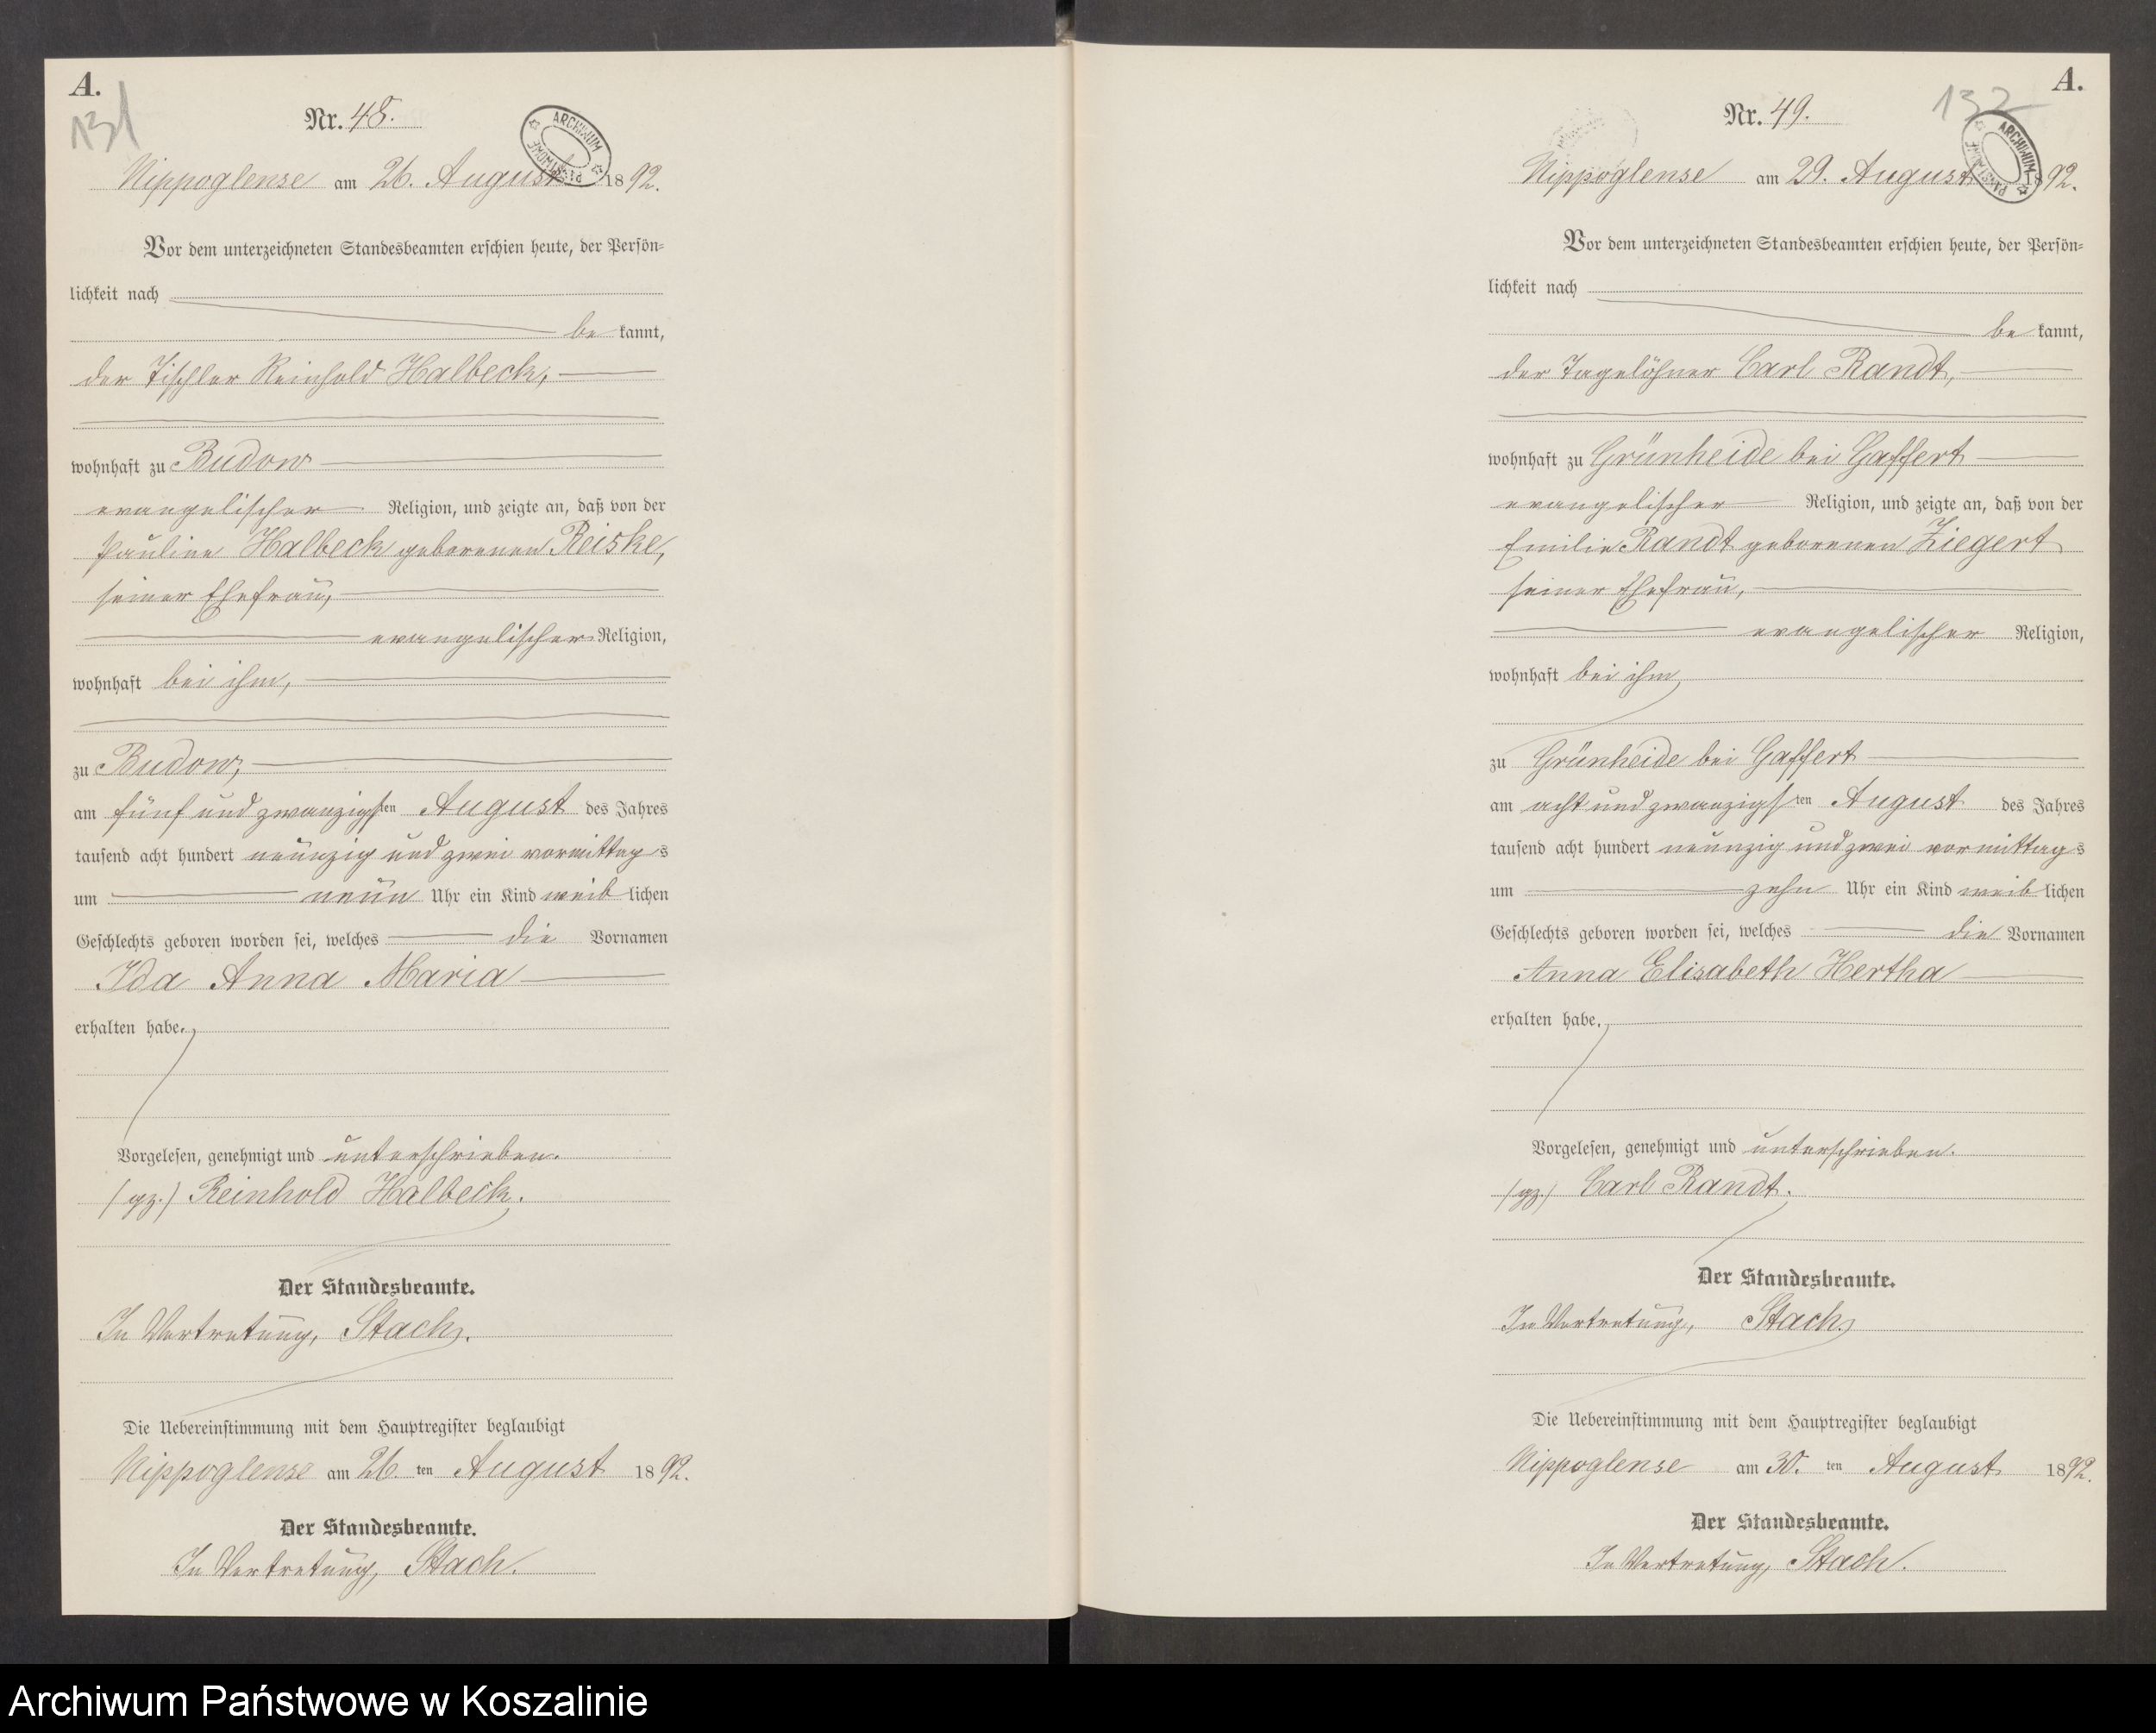 A.
131
Nr. 48.
ARCHIWUM PAŃSTWOWE
Nippoglense am 26. August 1892.
Vor dem unterzeichneten Standesbeamten erschien heute, der Persön-
lichkeit nach
be kannt,
der Tischler Reinhold Halbeck,
wohnhaft zu Budow
evangelischer Religion, und zeigte an, daß von der
Pauline Halbeck geborenen Reiske,
seiner Ehefrau,
evangelischer Religion,
wohnhaft bei ihm,
zu Budow,
am fünf und zwanzigsten August des Jahres
tausend acht hundert neunzig und zwei vormittags
um neun Uhr ein Kind weiblichen
Geschlechts geboren worden sei, welches die Vornamen
Ida Anna Maria
erhalten habe.
Vorgelesen, genehmigt und unterschrieben.
(gz.) Reinhold Halbeck.
Der Standesbeamte.
In Vertretung, Stach.
Die Uebereinstimmung mit dem Hauptregister beglaubigt
Nippoglense am 26. ten August 1892.
Der Standesbeamte.
In Vertretung, Stach.
A.
132
Nr. 49.
ARCHIWUM PAŃSTWOWE
Nippoglense am 29. August 1892.
Vor dem unterzeichneten Standesbeamten erschien heute, der Persön-
lichkeit nach
be kannt,
der Tagelöhner Carl Randt,
wohnhaft zu Grünheide bei Gaffert
evangelischer Religion, und zeigte an, daß von der
Emilie Randt geborenen Ziegert
seiner Ehefrau,
evangelischer Religion,
wohnhaft bei ihm
zu Grünheide bei Gaffert
am acht und zwanzigsten August des Jahres
tausend acht hundert neunzig und zwei vormittags
um zehn Uhr ein Kind weiblichen
Geschlechts geboren worden sei, welches die Vornamen
Anna Elisabeth Hertha
erhalten habe.
Vorgelesen, genehmigt und unterschrieben.
(gz.) Carl Randt.
Der Standesbeamte.
In Vertretung, Stach
Die Uebereinstimmung mit dem Hauptregister beglaubigt
Nippoglense am 30. ten August 1892.
Der Standesbeamte.
In Vertretung, Stach.
Archiwum Państwowe w Koszalinie